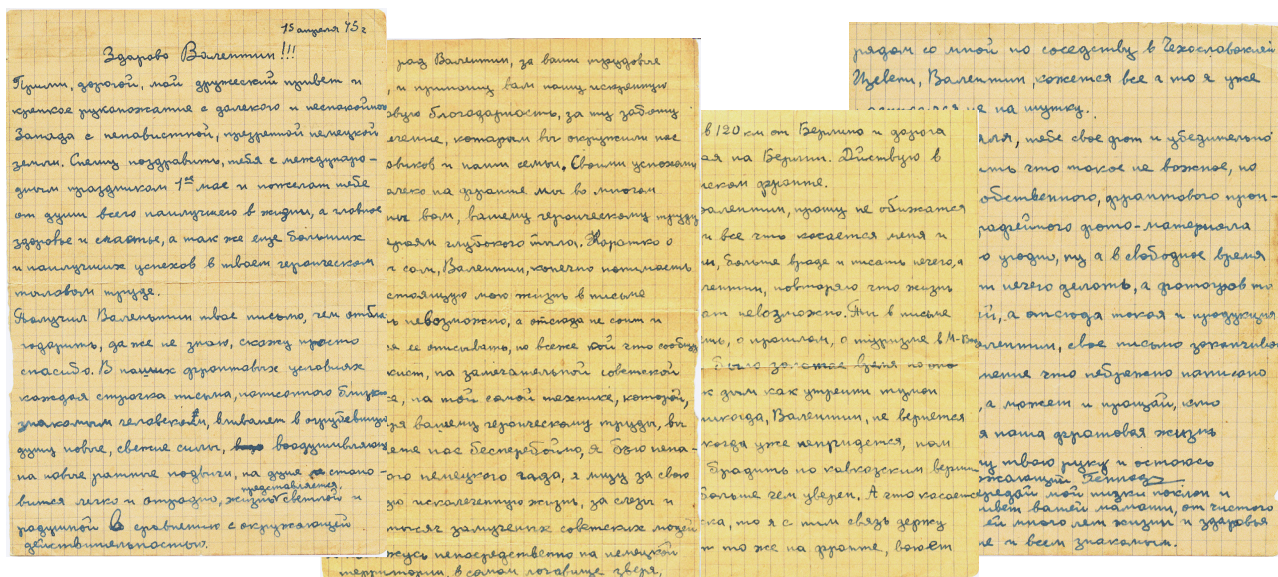 15 апреля 45 г
Здарово Валентин!!!
Прими, дорогой, мой дружеский привет и
крепкое рукопожатие с далекого и неспокойного
Запада с ненавистной, презретой немецкой
земли. Спешу поздравить, тебя с междунаро-
дным праздником 1ое мае и пожелат тебе
от души всего наилучшего в жизни, а главное
здоровье и счастье, а так же еще больших
и наилучших успехов в твоем героическом
тыловом труде.
Получил Валентин твое письмо, чем отбла
годарить, да же не знаю, скажу просто
спасибо. В наших фронтовых условиях
каждая строчка письма, написонного близко
знакомым человеком, вливает в огрубевшую
душу новые, свежие силы, воодушивляющ
на новые ратные подвиги, на душе стано-
вится легко и отрадно, жизнь представляется светлой и
радушной в сравнении с окружающей
действительностью.
рад Валентин, за ваши трудовые
, и приношу вам нашу искренную
овую благодарность, за ту заботу
ечение, которым вы окружили нас
овиков и наши семьи. Своими успехами
алеко на фронте мы во многом
ны вам, вашему героическому труду
ероям глубокого тыла. Коротко о
сам, Валентин, конечно понимаеть
стоящую мою жизнь в письме
ь невозможно, а отсюда не соит и
я ее описывать, но всеже кой что сообщу
кист, на замечательной советской
е, на той самой технике, которой,
ря вашему героическому труды, вы
ете нас бесперебойно, я бью нена-
ого немецкого гада, я мщу за свою
ю искалеченную жизнь, за слезы и
тысяч замученых советских людей
жусь непосредственно на немецкой
территории, в самом логавище зверя,
в 120 км от Берлина и дорога
ая на Берлин. Дйиствую в
нском фронте.
Валентин, прошу не обижатся
и все что касается меня и
и, больше вроде и писать нечего, а
лентин, повторяю что жизнь
ат невозможно. Ты в письме
, о прошлом, о туризме в
было
к дым как утрени туман
никогда, Валентин, не вернется
когда уже непридется, нам
бродить по кавказским верши
больше чем уверен. А что касается
ка, то я с ним связь держу
н то же на фронте, воюет
рядом со мной по соседству в Чехославокией
Цвети, Валентин, кожется все что я уже
не на шутку.
ля, тебе свое фот и убедительно
ть что такое не важное, но
обственного, фронтового прои-
рафейного фото-материяла
о угодно, ну а в свободное время
т нечего делоть, а фотогров то
й, а отсюда такая и продукция
алентин, свое письмо заканчиваю
нение что небрежно написано
, а может и прощай, ито
я наша фронтовая жизнь
у твою руку и остоюсь
жающий
передай мой низки поклон и
ивет вашей мамаши, от чистого
ей много лет жизни и здоровья
е и всем знакомым.